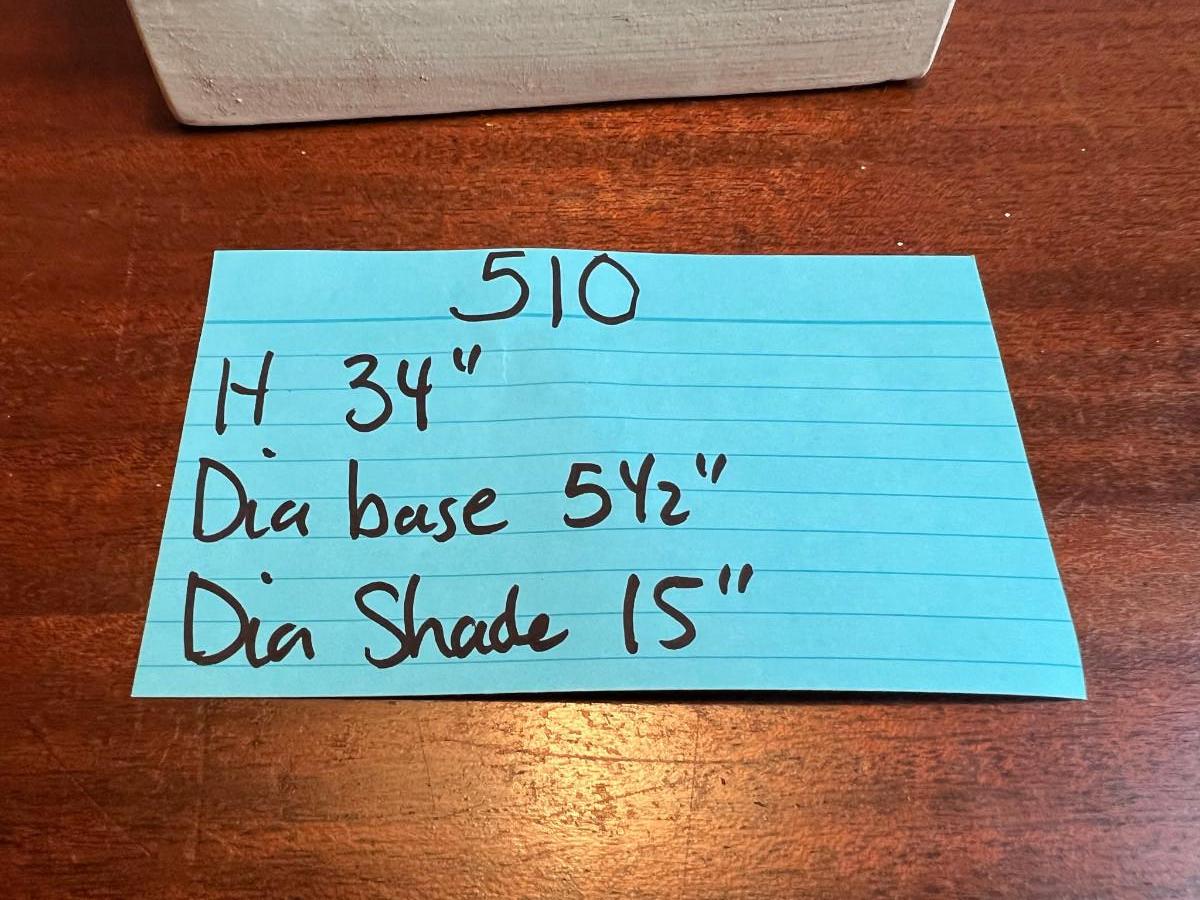 510
H 34"
Dia base 5 1/2"
Dia Shade 15"